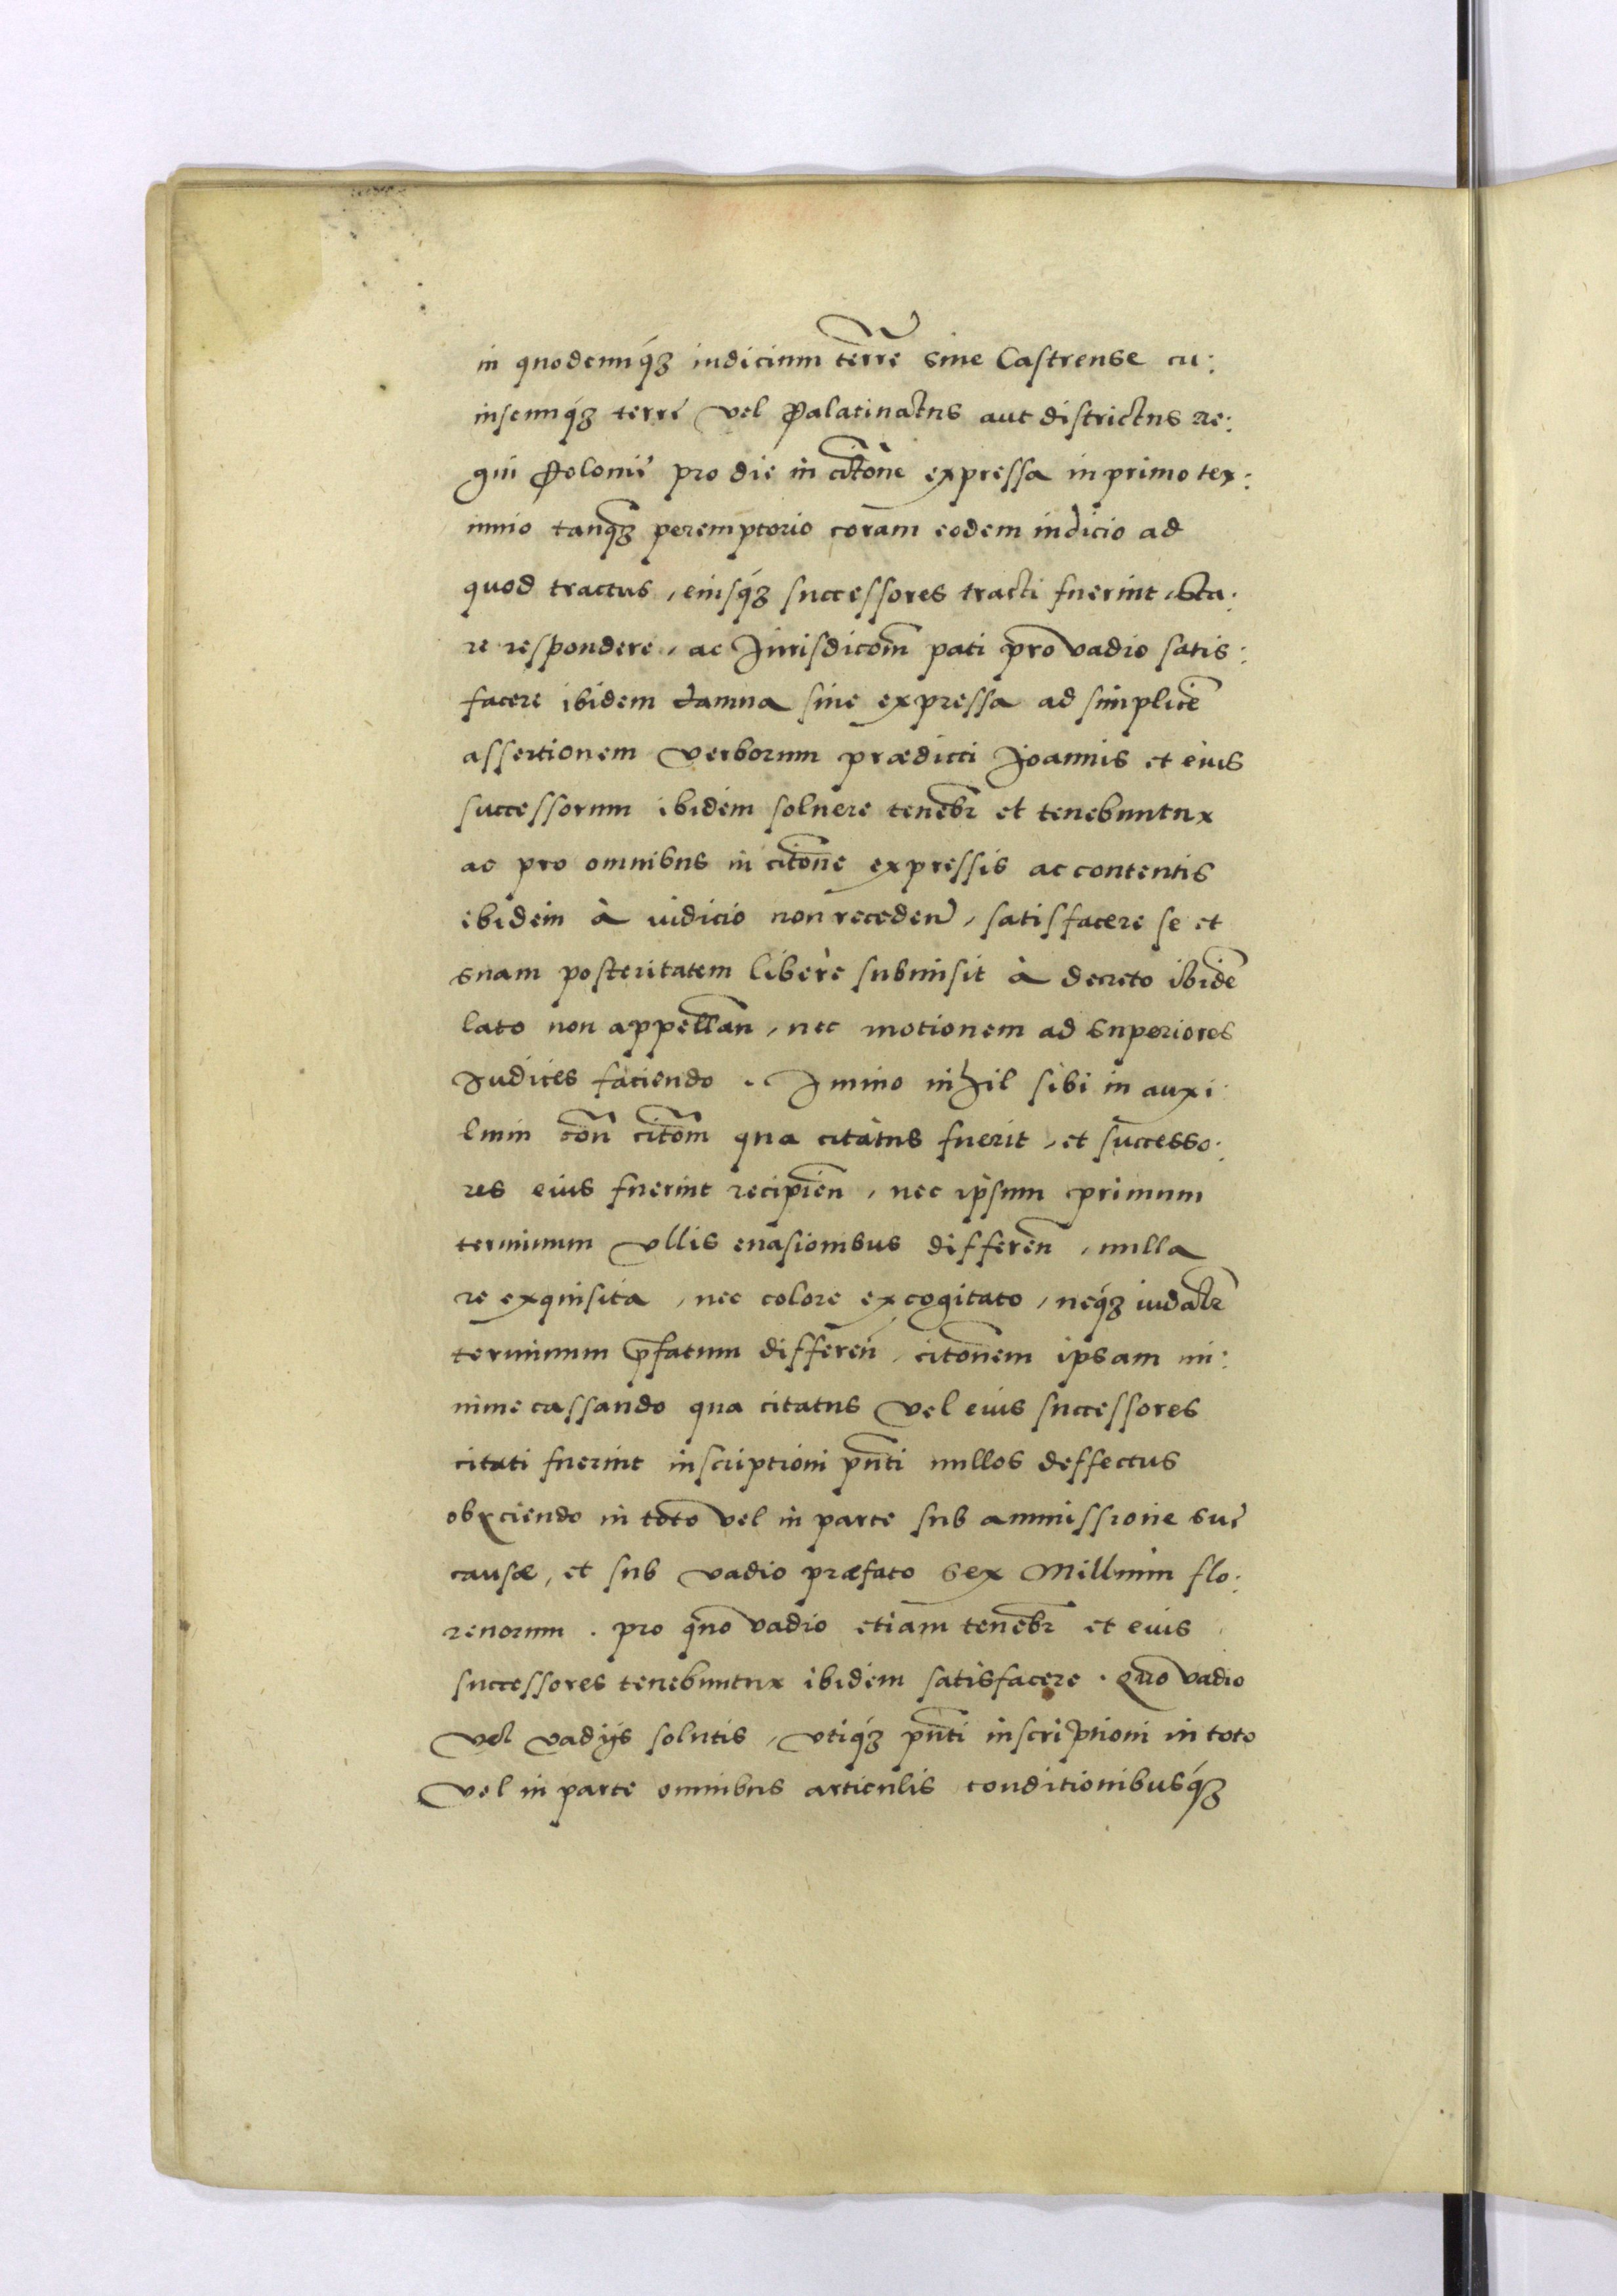 in quodcunq́ꝫ iudicium terrẽ siue Castrense cu:
iuscunq́ꝫ terrę vel Palatinatus aut districtus Re:
gni Polonię pro die in citõne expressa in primo ter:
mino tanq̃ꝫ peremptorio coram eodem iudicio ad
quod tractus, eiusq́ꝫ successores tracti fuerint, sta:
re respondere, ac Jurisdicõm pati pro vadio satis:
facere ibidem damna siue expressa ad simplicẽ
assertionem verborum prædicti Joannis et eius
successorum ibidem soluere tenebr̃ et tenebuntur
ac pro omnibus in citõne expressis ac contentis
ibidem à iudicio non receden̄, satisfacere se et
suam posteritatem liberè submisit à decreto ibidẽ
lato non appellañ, nec motionem ad superiores
Judices faciendo. Immo nihil sibi in auxi:
lium coñ citõm qua citatus fuerit, et successo:
res eius fuerint recipieñ, nec ipsum primum
terminum vllis euasionibus differeñ, nulla
re exquisita, nec colore excogitato, neq́ꝫ iudalr̃
terminum p̃fatum differeñ, citõnem ipsam mi:
nime cassando qua citatus vel eius successores
citati fuerint inscriptioni pñti nullos deffectus
obijciendo in toto vel in parte sub ammissione suę
causæ, et sub vadio præfato sex Millium flo:
renorum. pro quo vadio etiam tenebr̃ et eius
successores tenebuntur ibidem satisfacere. Quo vadio
vel vadijs solutis, vtiq́ꝫ pñti inscriptioni in toto
vel in parte omnibus articulis conditionibusq́ꝫ